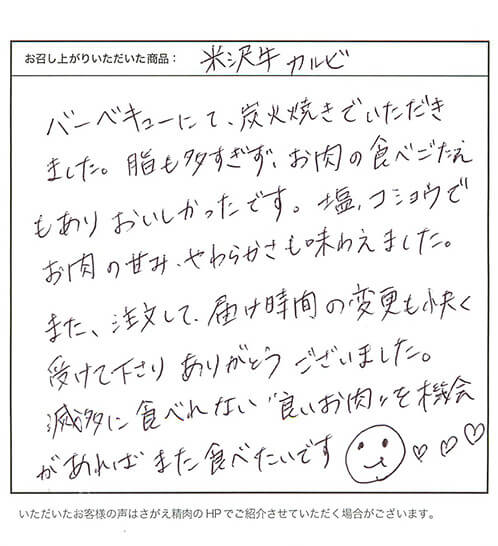 お召し上がりいただいた商品： 米沢牛 カルビ
バーベキューにて、炭火焼きでいただき
ました。脂も多すぎず、お肉の食べごたえ
もあり おいしかったです。塩、コショウで
お肉の甘み、やわらかさも味わえました。
また、注文して、届け時間の変更も快く
受けて下さり ありがとう ございました。
滅多に食べれない"良いお肉"を機会
があれば また食べたいです
いただいたお客様の声はさがえ精肉のHPでご紹介させていただく場合がございます。